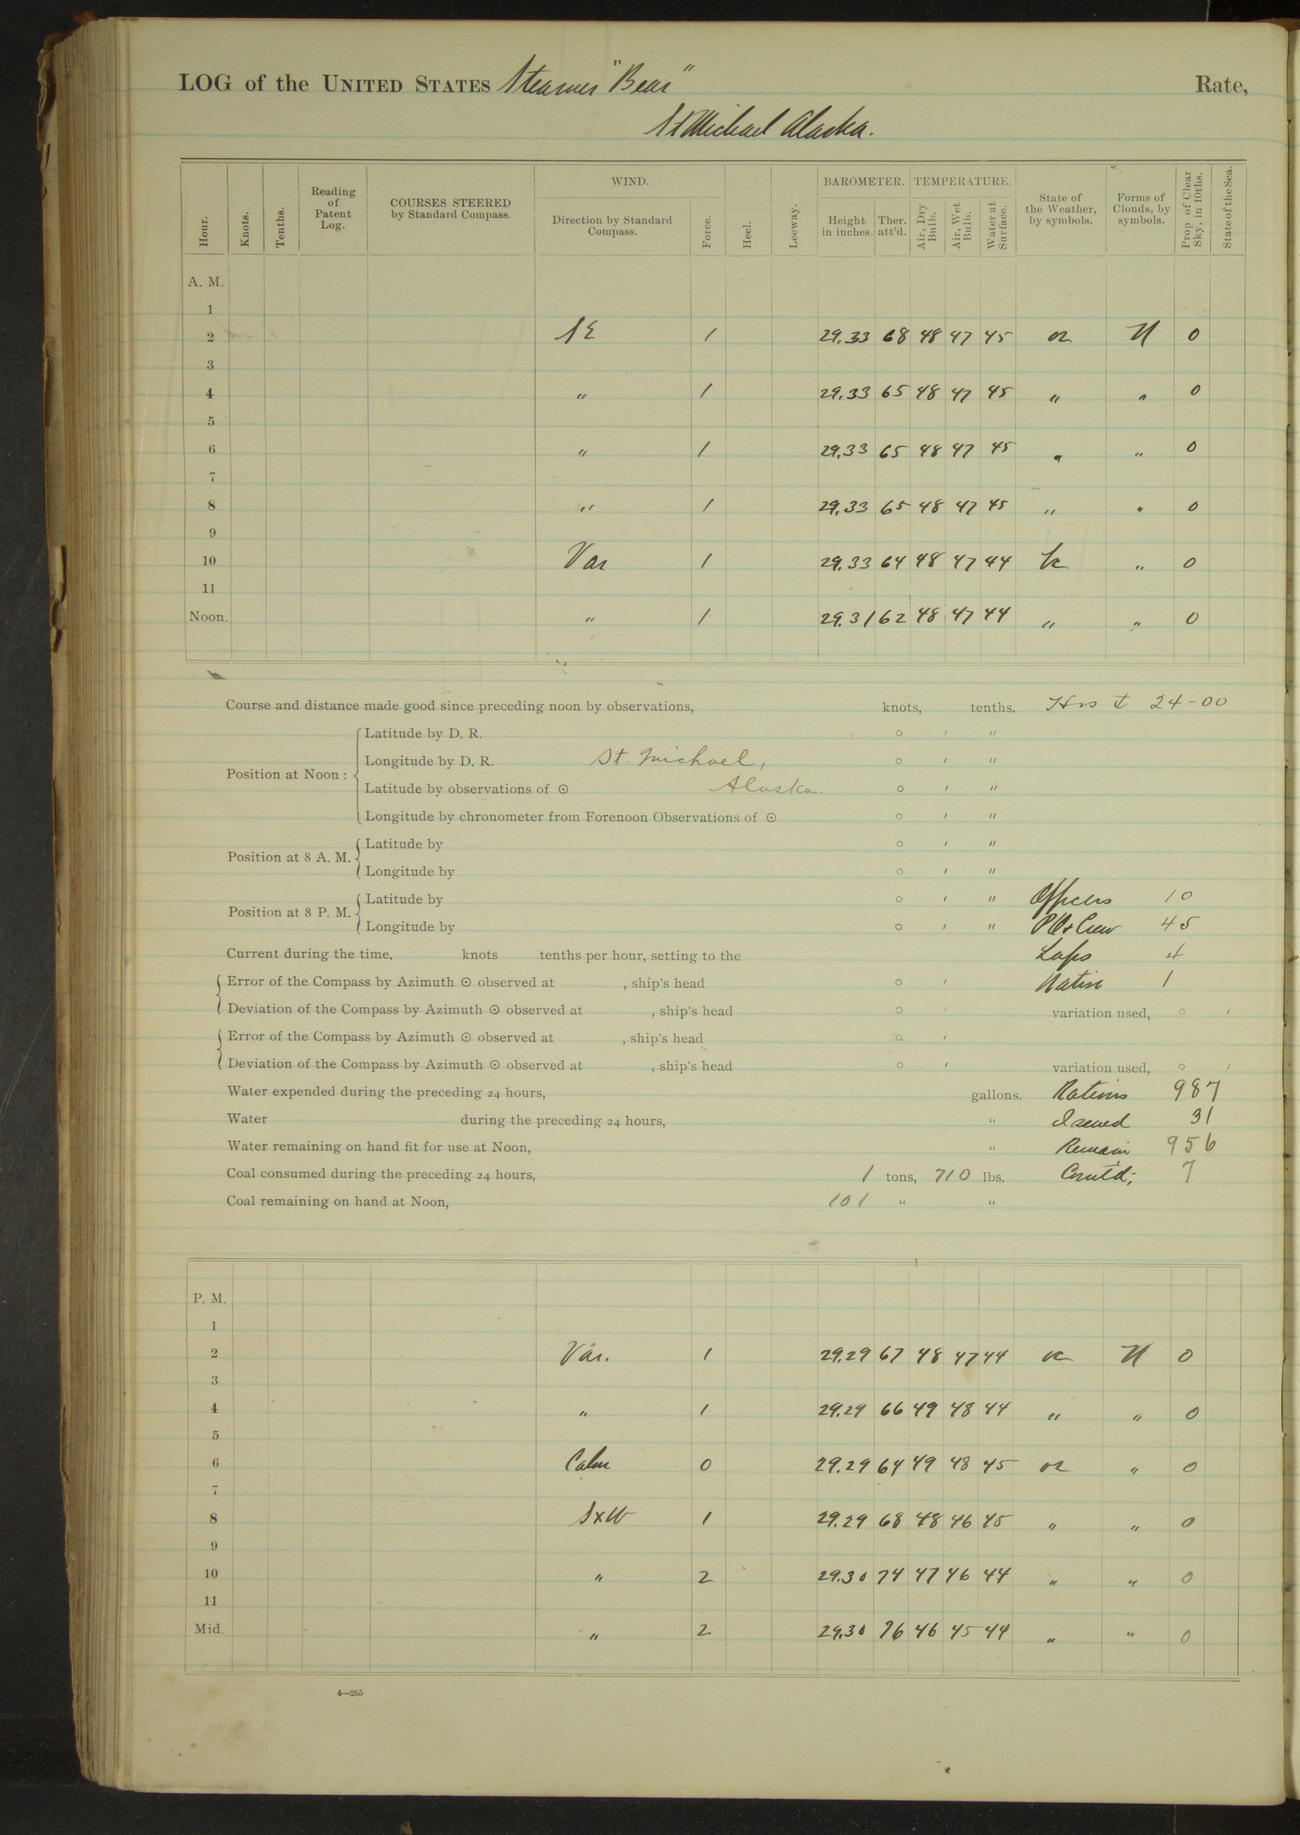 LOG of the UNITED STATES Steamer "Bear" Rate,
St Michael Alaska.
Hour. Knots. Tenths. Reading of Patent Log. COURSES STEERED by Standard Compass. WIND. Direction by Standard Compass. Force. Heel. Leeway. BAROMETER. Height in inches. Ther. att'd. TEMPERATURE. Air, Dry Bulb. Air, Wet Bulb. Water at Surface. State of the Weather, by symbols. Forms of Clouds, by symbols. Prop. of Clear Sky, in 10ths. State of the Sea.
A. M.
1
2 SE 1 29.33 68 48 47 45 or N 0
3
4 " 1 29.33 65 48 47 45 " " 0
5
6 " 1 29.33 65 48 47 45 " " 0
7
8 " 1 29.33 65 48 47 45 " " 0
9
10 Var 1 29.33 64 48 47 44 " 0
11
Noon. " 1 29.31 62 48 47 44 " " 0
Course and distance made good since preceding noon by observations, knots, tenths. 24-00
Position at Noon :
Latitude by D. R. ° ' "
Longitude by D. R. St. Michael, ° ' "
Latitude by observations of ☉ Alaska. ° ' "
Longitude by chronometer from Forenoon Observations of ☉ ° ' "
Position at 8 A. M. Latitude by ° ' "
Longitude by ° ' "
Position at 8 P. M. Latitude by ° ' " Officers 10
Longitude by ° ' " Crew 45
Current during the time, knots tenths per hour, setting to the Laps 4
Error of the Compass by Azimuth ☉ observed at , ship's head ° ' Native 1
Deviation of the Compass by Azimuth ☉ observed at , ship's head ° ' variation used, ° '
Error of the Compass by Azimuth ☉ observed at , ship's head ° '
Deviation of the Compass by Azimuth ☉ observed at , ship's head ° ' variation used, ° '
Water expended during the preceding 24 hours, gallons. Rations 987
Water during the preceding 24 hours, " Issued 31
Water remaining on hand fit for use at Noon, " Remain 956
Coal consumed during the preceding 24 hours, 1 tons, 710 lbs. Comt'd; 7
Coal remaining on hand at Noon, 101 " "
P. M.
1
2 Var. 1 29.29 67 48 47 44 N 0
3
4 " 1 29.29 66 49 48 44 " " 0
5
6 Calm 0 29.29 64 49 48 45 or " 0
7
8 SxW 1 29.29 68 48 46 45 " " 0
9
10 " 2 29.30 74 47 46 44 " " 0
11
Mid. " 2 29.30 76 46 45 44 " " 0
4—265